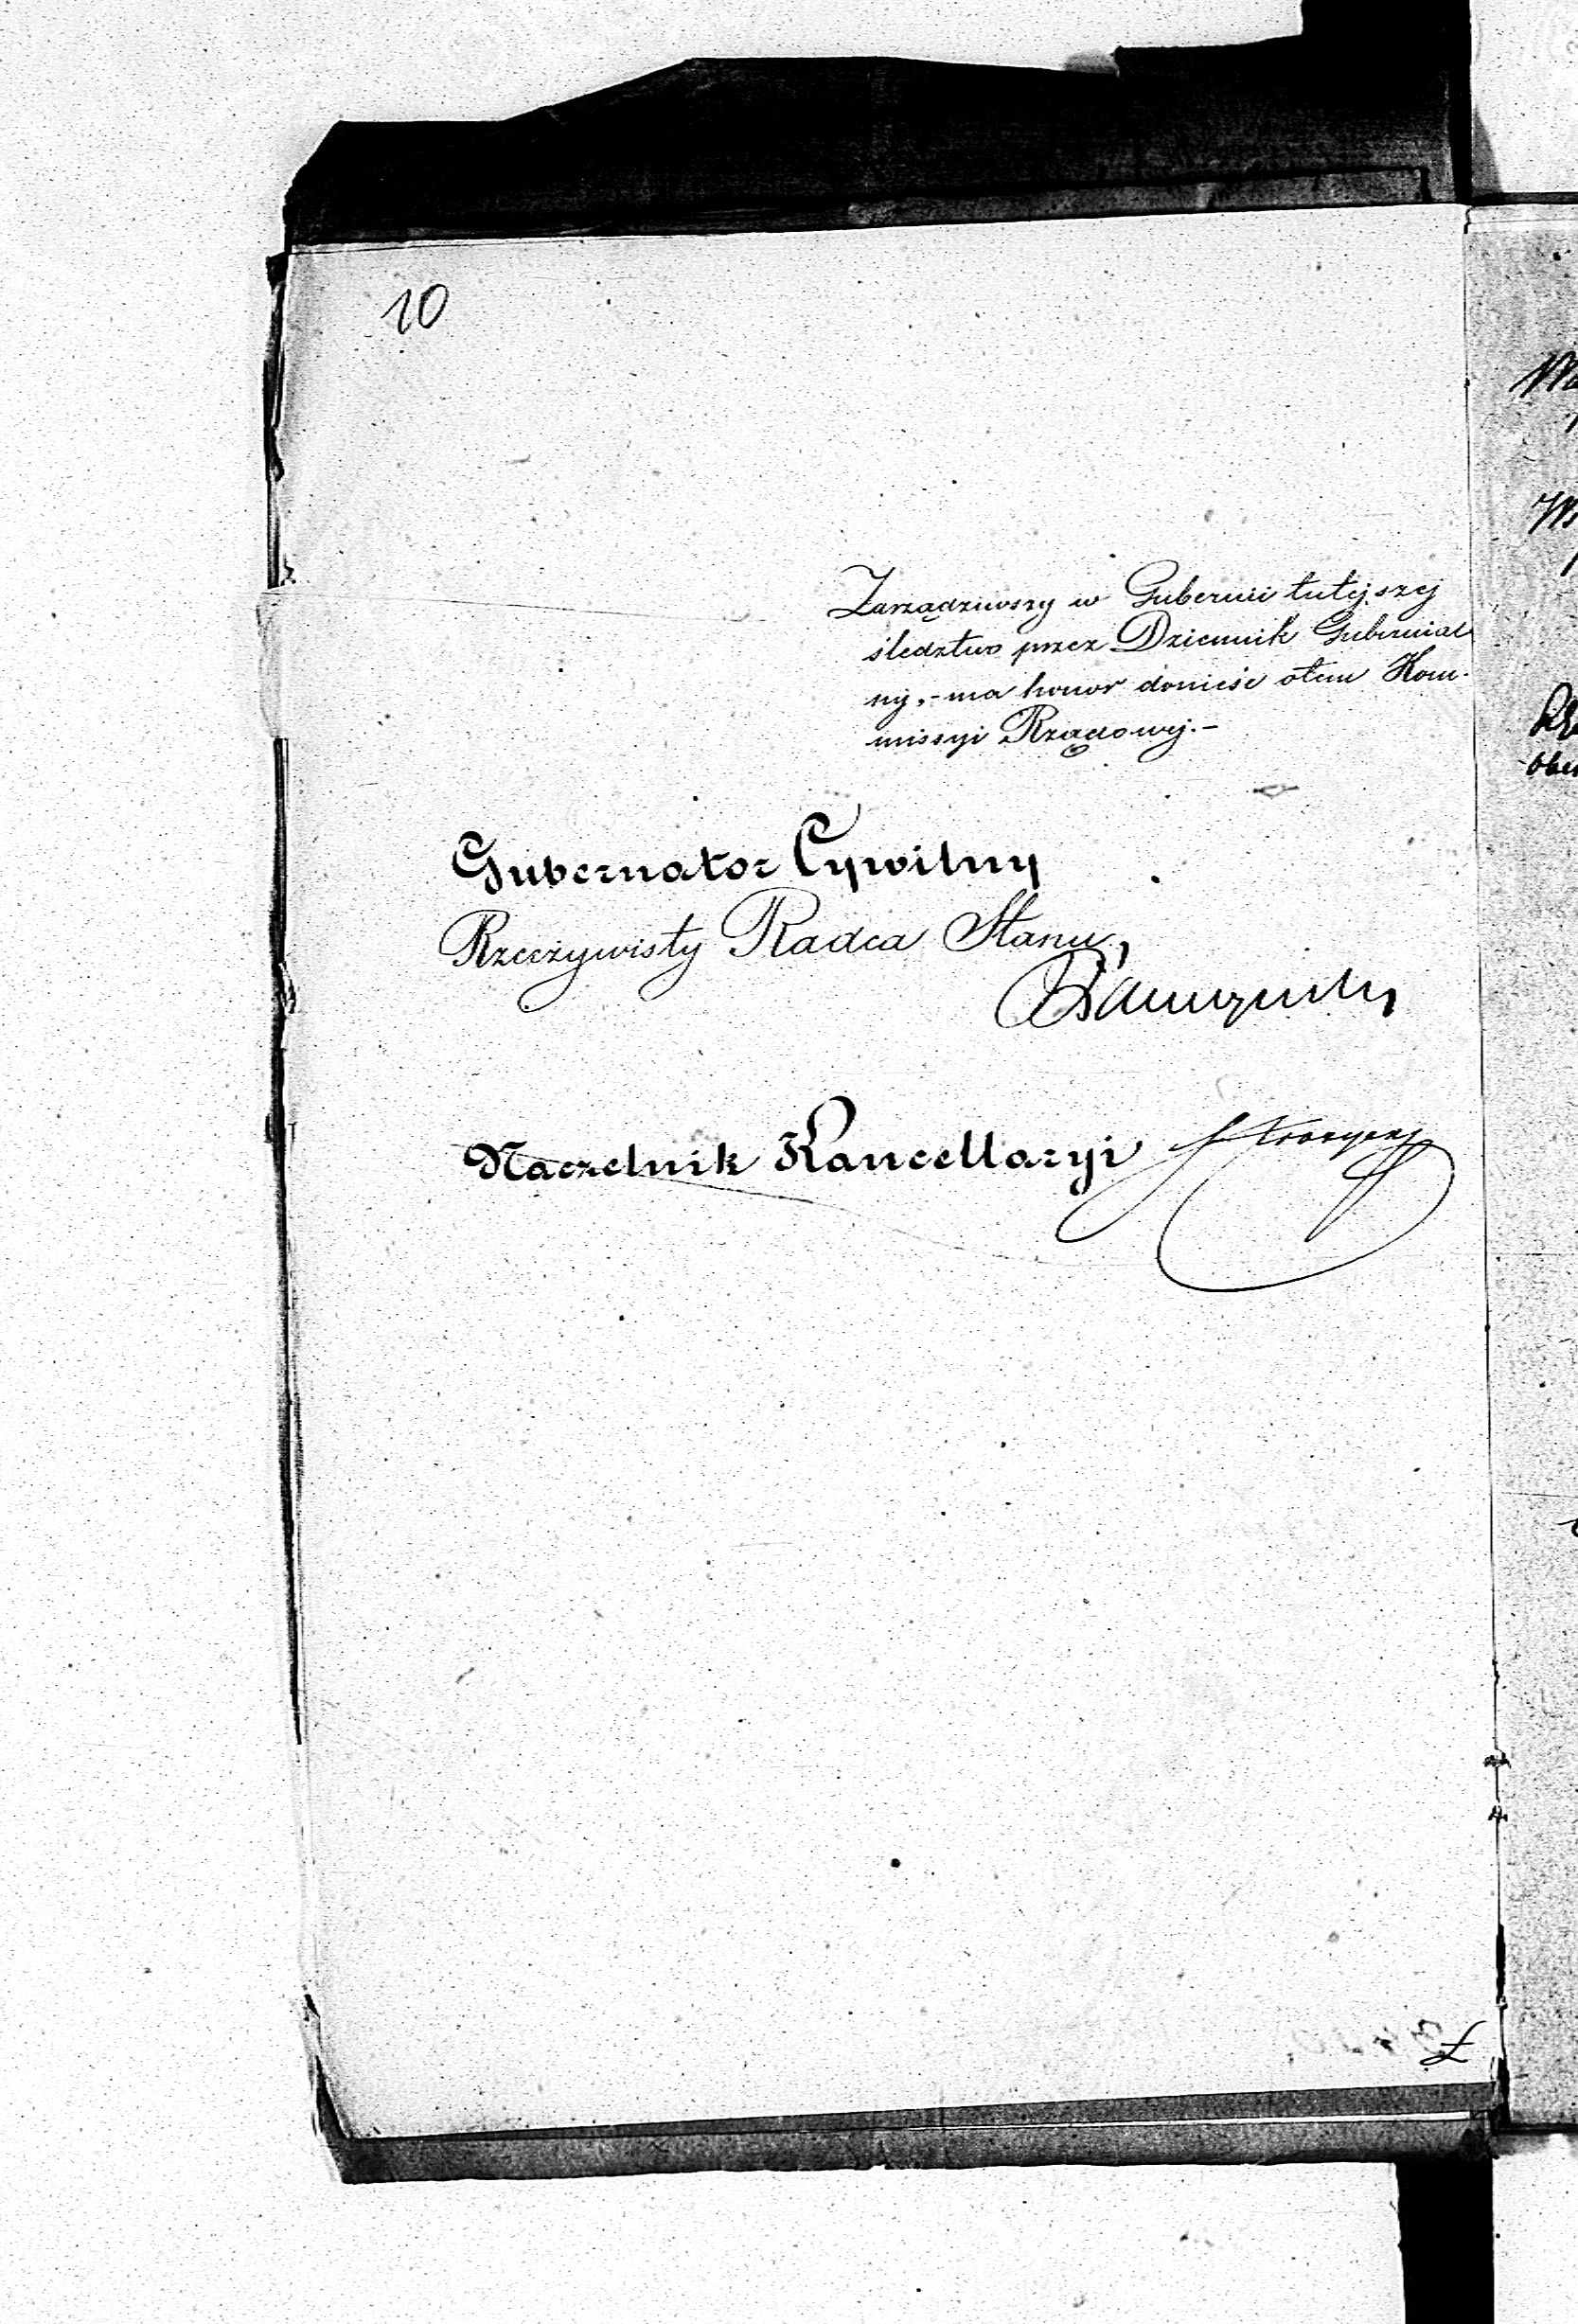 10
Zarządziwszy w Gubernii tutejszej
śledztwo przez Dziennik Gubernial
ny, - ma honor donieść o tem Kom-
missyi Rządowej. -
Gubernator Cywilny
Rzeczywisty Radca Stanu,
Naczelnik Kancellaryi